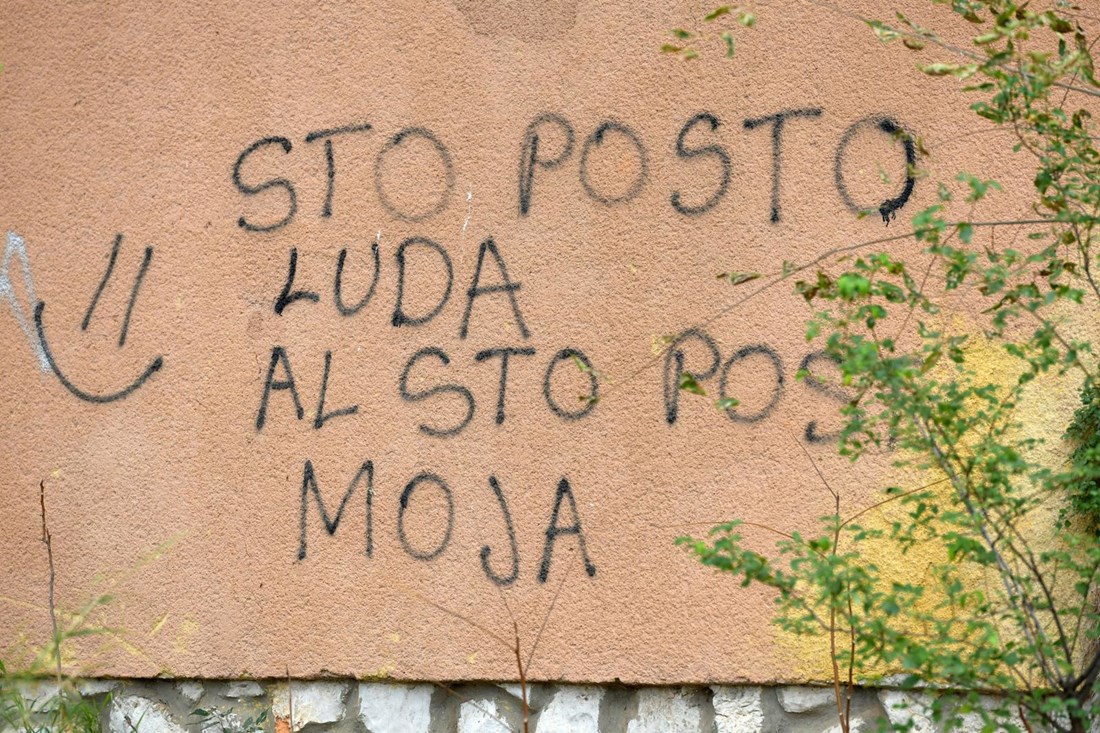 STO POSTO
LUDA
AL STO POS
MOJA